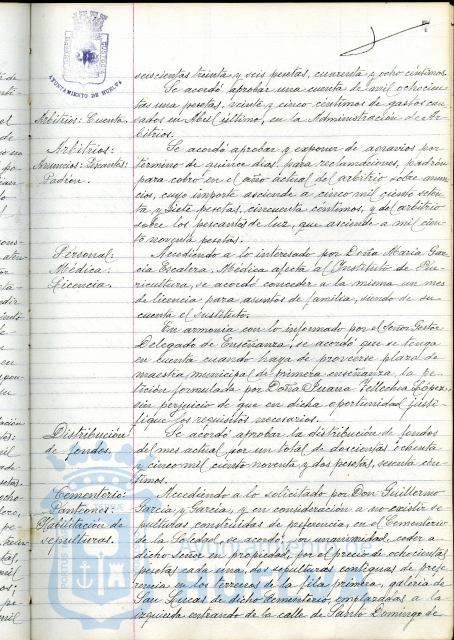 AYUNTAMIENTO DE HUELVA
seiscientas treinta y seis pesetas, cuarenta y ocho céntimos.
Se acordó aprobar una cuenta de mil ochocien-
Arbitrios: Cuenta.
tas una pesetas, veinte y cinco céntimos de gastos cau-
sados en Abril último, en la Administración de Ar-
bitrios.
Arbitrios:
Anuncios: Pescantes:
Padrón.
Se acordó aprobar y exponer de agravios por
término de quince días para reclamaciones, padrón
para cobro en el año actual del arbitrio sobre anun-
cios, cuyo importe asciende a cinco mil ciento seten-
ta y siete pesetas, cincuenta céntimos, y del arbitrio
sobre los pescantes de luz, que asciende a mil cien-
to noventa pesetas.
Personal:
Médica:
Licencia.
Accediendo a lo interesado por Doña María Gar-
cía Escalera, Médica afecta al Instituto de Pue-
ricultura, se acordó conceder a la misma un mes
de licencia para asuntos de familia, siendo de su
cuenta el sustituto.
En armonía con lo informado por el Señor Gestor
Delegado de Enseñanza, se acordó que se tenga
en cuenta cuando haya de proveerse plaza de
maestra municipal de primera enseñanza, la pe-
tición formulada por Doña Juana Tellechea López,
sin perjuicio de que en dicha oportunidad justi-
fique los requisitos necesarios.
Distribución
de fondos.
Se acordó aprobar la distribución de fondos
del mes actual por un total de doscientas ochenta
y cinco mil ciento noventa y dos pesetas, sesenta cén-
timos.
Cementerio:
Panteones:
Habilitación de
sepulturas.
Accediendo a lo solicitado por Don Guillermo
García y García, y en consideración a no existir se-
pulturas construidas de preferencia, en el Cementerio
de la Soledad, se acordó, por unanimidad, ceder a
dicho señor en propiedad, por el precio de ochocientas
pesetas cada una, dos sepulturas contiguas de prefe-
rencia en los terrenos de la fila primera, galería de
San Lucas de dicho Cementerio, emplazadas a la
izquierda entrando de la calle de Santo Domingo de